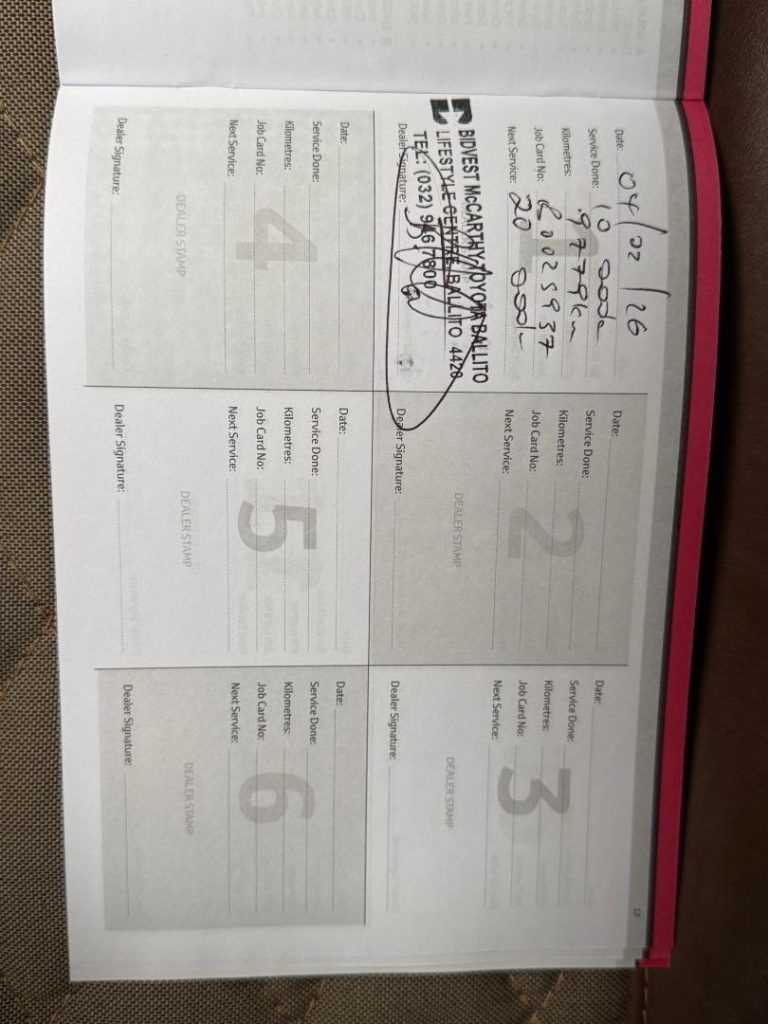 Date: 04/02/26
Service Done: 10 000km
Kilometres: 9779km
Job Card No: 20025937
Next Service: 20 000km
1
BIDVEST McCARTHY TOYOTA BALLITO
LIFESTYLE CENTRE, BALLITO 4420
TEL: (032) 946 7800
Dealer Signature:
Date:
Service Done:
Kilometres:
Job Card No:
Next Service:
2
DEALER STAMP
Dealer Signature:
Date:
Service Done:
Kilometres:
Job Card No:
Next Service:
3
DEALER STAMP
Dealer Signature:
Date:
Service Done:
Kilometres:
Job Card No:
Next Service:
4
DEALER STAMP
Dealer Signature:
Date:
Service Done:
Kilometres:
Job Card No:
Next Service:
5
DEALER STAMP
Dealer Signature:
Date:
Service Done:
Kilometres:
Job Card No:
Next Service:
6
DEALER STAMP
Dealer Signature: